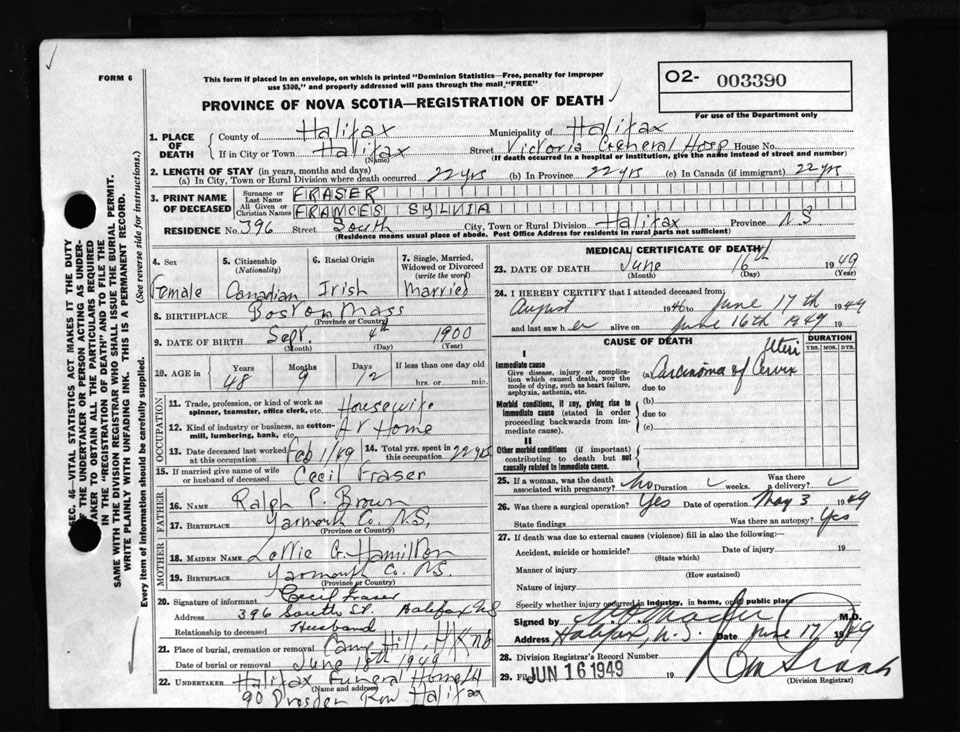 FORM 6
This form if placed in an envelope, on which is printed "Dominion Statistics—Free, penalty for improper
use $300," and properly addressed will pass through the mail "FREE"
O2- 003390
For use of the Department only
PROVINCE OF NOVA SCOTIA—REGISTRATION OF DEATH
1. PLACE OF DEATH
County of Halifax Municipality of Halifax
If in City or Town Halifax (Name) Street Victoria General Hosp House No.
(If death occurred in a hospital or institution, give the name instead of street and number)
2. LENGTH OF STAY (in years, months and days)
(a) In City, Town or Rural Division where death occurred 22 yrs (b) In Province 22 yrs (c) In Canada (if immigrant) 22 yrs
3. PRINT NAME OF DECEASED
Surname or Last Name FRASER
All Given or Christian Names FRANCES SYLVIA
RESIDENCE No. 396 Street South City, Town or Rural Division Halifax Province N S
(Residence means usual place of abode. Post Office Address for residents in rural parts not sufficient)
4. Sex Female
5. Citizenship (Nationality) Canadian
6. Racial Origin Irish
7. Single, Married, Widowed or Divorced (write the word) Married
8. BIRTHPLACE Boston Mass
(Province or Country)
9. DATE OF BIRTH Sept. 4th 1900
(Month) (Day) (Year)
10. AGE in Years 48 Months 9 Days 12 If less than one day old
hrs. or min.
OCCUPATION
11. Trade, profession, or kind of work as spinner, teamster, office clerk, etc. Housewife
12. Kind of industry or business, as cotton-mill, lumbering, bank, etc. At Home
13. Date deceased last worked at this occupation Feb 1/49 14. Total yrs. spent in this occupation 22 yrs
15. If married give name of wife or husband of deceased Cecil Fraser
FATHER
16. NAME Ralph P. Brown
17. BIRTHPLACE Yarmouth Co. N.S.
(Province or Country)
MOTHER
18. MAIDEN NAME G. Hamilton
19. BIRTHPLACE Yarmouth Co. N.S.
(Province or Country)
20. Signature of informant Cecil Fraser
Address 396 South St. Halifax NS
Relationship to deceased Husband
21. Place of burial, cremation or removal Camp Hill,
Date of burial or removal June 18th 1949
22. UNDERTAKER Halifax Funeral Home
(Name and address)
90 Dresden Row Halifax
MEDICAL CERTIFICATE OF DEATH
23. DATE OF DEATH June 16th 1949
(Month) (Day) (Year)
24. I HEREBY CERTIFY that I attended deceased from:
August 1946 to June 17th 1949
and last saw her alive on June 16th 1949 19
CAUSE OF DEATH
DURATION
YRS. MOS. DYS.
I
Immediate cause
Give disease, injury or complication which caused death, NOT the mode of dying, such as heart failure, asphyxia, asthenia, etc.
(a) Carcinoma of Cervix Uteri
due to
Morbid conditions, if any, giving rise to immediate cause (stated in order proceeding backwards from immediate cause).
(b)
due to
(c)
II
Other morbid conditions (if important) contributing to death but not causally related to immediate cause.
25. If a woman, was the death associated with pregnancy? No Duration weeks. Was there a delivery?
26. Was there a surgical operation? Yes Date of operation May 3 1949
State findings Was there an autopsy? Yes
27. If death was due to external causes (violence) fill in also the following:—
Accident, suicide or homicide? Date of injury 19
(State which)
Manner of injury
(How sustained)
Nature of injury
Specify whether injury occurred in industry, in home, or in public place
Signed by M.D.
Address Halifax, N.S. Date June 17 1949
28. Division Registrar's Record Number
29. JUN 16 1949 19
(Division Registrar)
SEC. 46—VITAL STATISTICS ACT MAKES IT THE DUTY
OF THE UNDERTAKER OR PERSON ACTING AS UNDER-
TAKER TO OBTAIN ALL THE PARTICULARS REQUIRED
IN THE "REGISTRATION OF DEATH" AND TO FILE THE
SAME WITH THE DIVISION REGISTRAR WHO SHALL ISSUE THE BURIAL PERMIT.
WRITE PLAINLY WITH UNFADING INK. THIS IS A PERMANENT RECORD.
Every item of information should be carefully supplied. (See reverse side for instructions.)